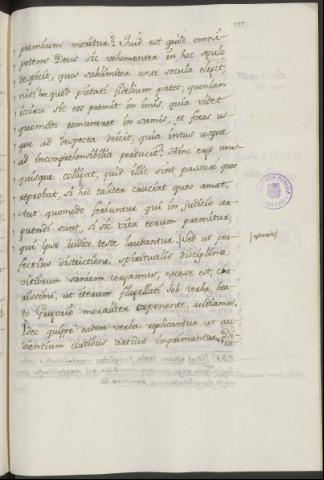 praemium moritur? Quid est quòd omni-
potens Deus sic vehementer in hoc seculo
despicit, quos sublimiter ante secula elegit,
nisi hoc quod pietati fidelium patet, quoniam
iccirco sic eos premit in imis, quia videt
quomodo remuneret in summis, et foras us-
que ad despecta deiicit, quia intus usque
ad incomprehensibilia perducit? Hinc ergo unus-
quisque colligat, quid illic sint passuri quos
reprobat, si hic taliter cruciat quos amat.
Aut quomodo feriuntur qui in judicio ar-
guendi sunt, si sic vita eorum premitur,
qui ipso iudice teste laudantur. Sed ut per-
fectius districtione spiritualis disciplinae
vitiorum saniem tergamus, necesse est, cha-
rissimi, ut iterum flagellati Iob verba, bea-
to Gregorio moraliter exponente, audiamus.
Ideo quippe eadem verba replicantur ut au-
dientium cordibus tertius imprimantur. Di-